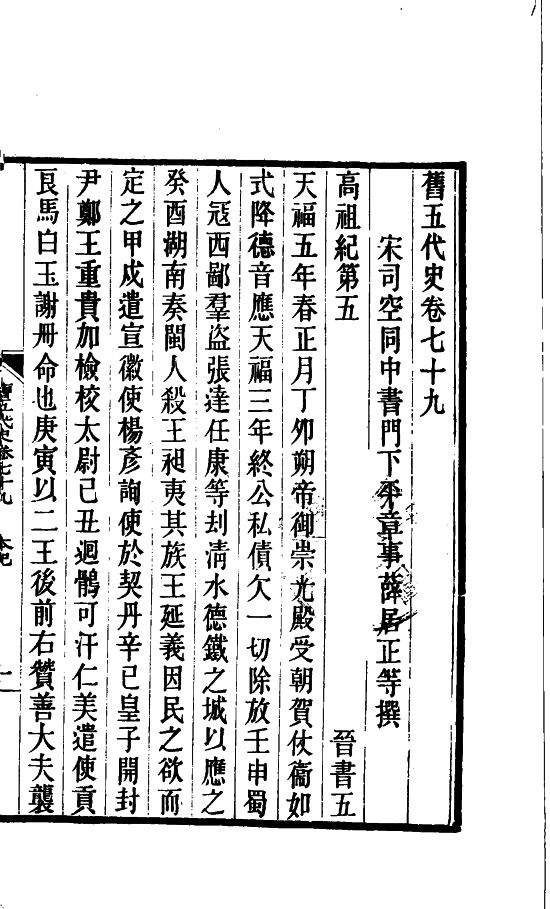 舊五代史卷七十九
宋司空同中書門下平章事薛居正等撰
高祖紀第五 晉書五
天福五年春正月丁夘朔帝御崇光殿受朝賀仗衞如
式降德音應天福三年終公私債欠一切除放壬申蜀
人冦西鄙羣盜張達任康等刦清水德鐵之城以應之
癸酉湖南奏閩人殺王昶夷其族王延義因民之欲而
定之甲戌遣宣徽使楊彥詢使於契丹辛巳皇子開封
尹鄭王重貴加檢校太尉己丑迴鶻可汗仁美遣使貢
良馬白玉謝册命也庚寅以二王後前右贊善大夫襲
舊五代史卷七十九 本紀 一